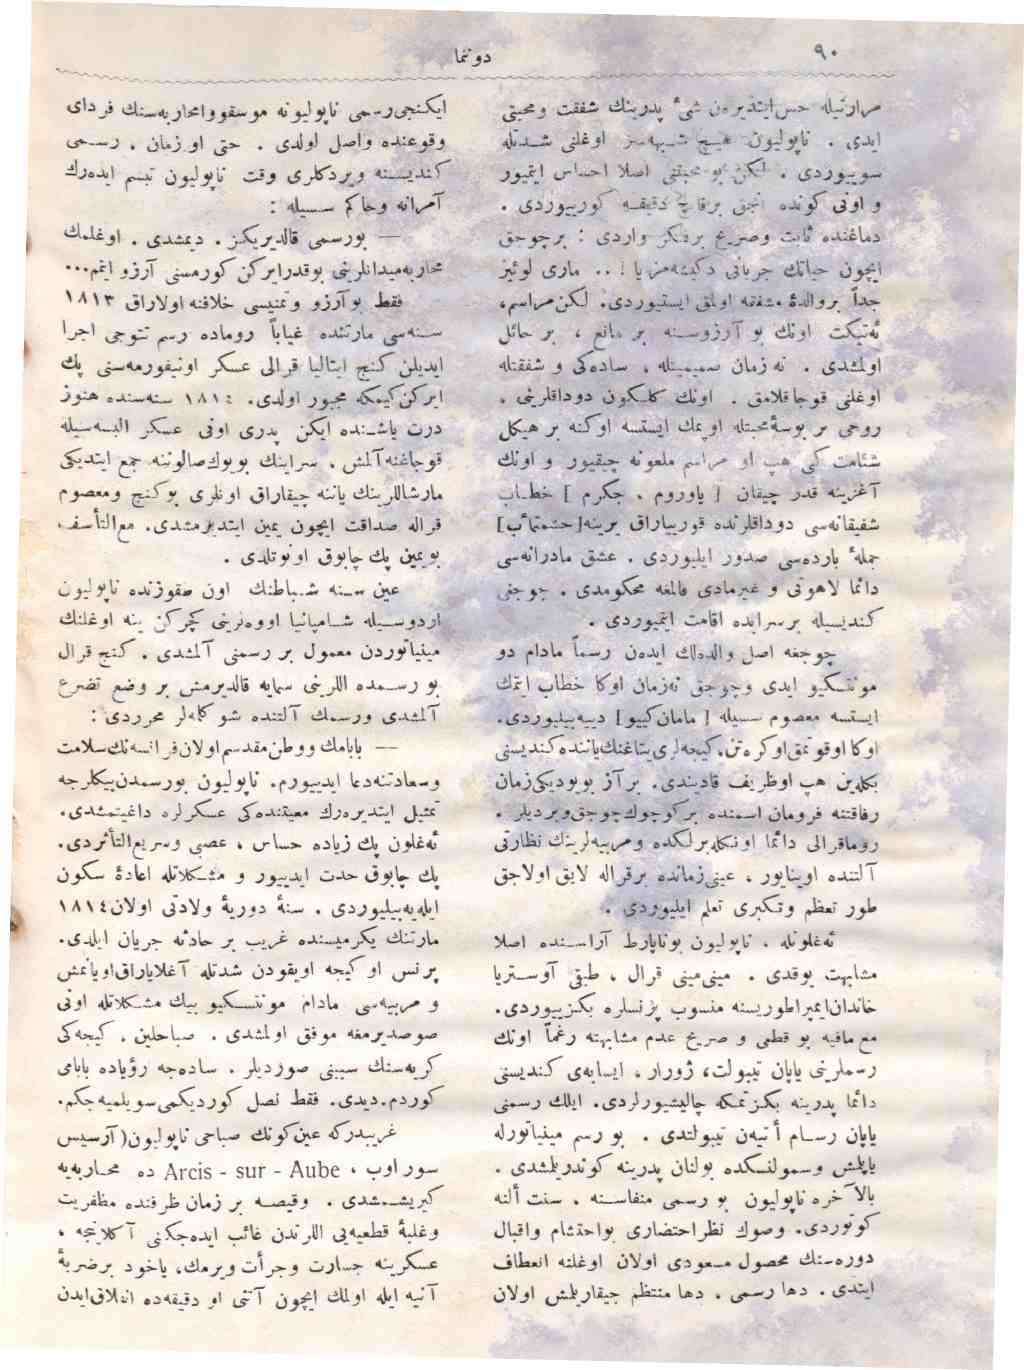 ٩٠
دوننما
مرارتيله حس ايتديرەن شیٔ پدرينك شفقت ومحبتی
ايدی . ناپوليون هيچ شبهەسز اوغلنی شدتله
سوييوردی . ليكن بو محبتنی اصلا احساس ايتميور
و اونی كونده آنجق برقاچ دقيقه كورييوردی .
دماغنده ثابت وصريح برفكر واردی : برچوجق
ايچون حياتك جريانی دكيشەمز يا ! .. ماری لوئيز
جداً بروالدۀ مشفقه اولمق ايستيوردی. لكن مراسم،
ئەتيكت اونك بو آرزوسنه بر مانع ، بر حائل
اولمشدی . نه زمان صميميتله ، سادەكی و شفقتله
اوغلنی قوجاقلامق . اونك كلكون دوداقلرينی ،
روحی بر بوسۀ محبتله اوپمك ايستسه اوكنه بر هيكل
شئامت كبی هپ او مراسم ملعونه چيقيور و اونك
آغزينه قدر چيقان [ ياوروم ، جكرم ] خطاب
شفيقانەسی دوداقلرنده قورييەراق يرينه [حشمتمآب]
جملۀ باردەسی صدور ايليوردی . عشق مادرانەسی
دائما لاهوتی و غيرمادی قالمغه محكومدی . چوجغی
كنديسيله برسرايده اقامت ايتميوردی .
چوجغه اصل والدەلك ايدەن رسماً مادام دو
مونتسكيو ايدی وچوجق نەزمان اوكا خطاب ايتمك
ايستسه معصوم سسيله [ مامان كييو ] دييەبيليوردی.
اوكا اوقوتمق اوكرەتن، كيجەلری يتاغنك ياننده كنديسنی
بكلەين هپ اوظريف قادیندی. بر آز بويوديكی زمان
رفاقتنه فرومان اسمنده بر كوچوك چوجق ويرديلر .
روماقرالی دائما اونكله برلكده ومربيەلرينك نظارتی
آلتنده اوينايور ، عينی زمانده برقراله لايق اولاجق
طور تعظم وتكبری تعلم ايليوردی .
ئەغلونله ، ناپوليون بوناپارط آراسنده اصلا
مشابهت يوقدی . مينی مينی قرال ، طبقی آوستريا
خاندان ايمپراطوريسنه منسوب پرنسلره بكزييوردی.
مع مافيه بو قطعی و صريح عدم مشابهته رغماً اونك
رسملرينی ياپان تيبولت، ژورار ، ايسابەی كنديسنی
دائما پدرينه بكزتمكه چاليشيورلردی. ايلك رسمنی
ياپان رسام أتيەن تيبولتدی . بو رسم مينياتورله
ياپلمش وسمولنسكده بولنان پدرينه كوندريلمشدی .
بالآخره ناپوليون بو رسمی منفاسنه ، سنت ألنه
كوتوردی. وصوك نظراحتضاری بواحتشام واقبال
دورەسنك محصول مسعودی اولان اوغلنه انعطاف
ايتدی . دها رسمی ، دها منتظم چيقاريلمش اولان
ايكنجی رسمی ناپوليونه موسقووامحاربەسنك فردای
وقوعنده واصل اولدی . حتی او زمان ، رسمی
كنديسنه ويردكلری وقت ناپوليون تبسم ايدەرك
آمرانه وحاكم سسيله :
— بورسمی قالديريكز . ديمشدی . اوغلمك
محاربەميدانلرينی بوقدرايركن كورمسنی آرزو ايتمم...
فقط بو آرزو وتمنيسی خلافنه اولاراق ١٨١٣
سنەسی مارتنده غياباً روماده رسم تتوجی اجرا
ايديلن كنج ايتاليا قرالی عسكر اونيفورمەسنی پك
ايركن كيمكه مجبور اولدی. ١٨١٤ سنەسنده هنوز
درت ياشنده ايكن پدری اونی عسكر البسەسيله
قوجاغنه آلمش ، سراينك بويوك صالوننه جمع ايتديكی
مارشاللرينك ياننه چيقاراق اونلری بوكنج ومعصوم
قراله صداقت ايچون يمين ايتديرمشدی. مع التأسف،
بويمين پك چابوق اونوتلدی .
عين سنه شباطنك اون طقوزنده ناپوليون
اردوسيله شامپانيا اووەلرينی كچركن ينه اوغلنك
مينياتوردن معمول بر رسمنی آلمشدی . كنج قرال
بو رسمده اللرينی سمايه قالديرمش بر وضع تضرع
آلمشدی ورسمك آلتنده شو كلمەلر محرردی :
— بابامك ووطن مقدسم اولان فرانسەنك سلامت
وسعادتنه دعا ايدييورم. ناپوليون بورسمدن بيكلرجه
تمثيل ايتديرەرك معيتندەكی عسكرلره داغيتمشدی.
ئەغلون پك زياده حساس ، عصبی وسريع التأثردی.
پك چابوق حدت ايدييور و مشكلاتله اعادۀ سكون
ايلەيەبيليوردی . سنۀ دوريۀ ولادتی اولان ١٨١٤
مارتنك يكرميسنده غريب بر حادثه جريان ايلدی.
پرنس او كيجه اويقودن شدتله آغلاياراق اويانمش
و مربيەسی مادام مونتسكيو بيك مشكلاتله اونی
صوصديرمغه موفق اولمشدی . صباحلين ، كيجەكی
كريەسنك سببنی صورديلر . سادەجه رؤياده بابامی
كوردم.ديدی. فقط نصل كورديكمی سويلميەجكم.
غريبدركه عين كونك صباحی ناپوليون( آرسيس
سور اوب ، Arcis - sur - Aube ده محاربەيه
كيريشمشدی . وقيصه بر زمان ظرفنده مظفريت
وغلبۀ قطعيەيی اللرندن غائب ايدەجكنی آكلاينجه ،
عسكرينه جسارت وجرأت ويرمك، ياخود برضربۀ
آنيه ايله اولمك ايچون آتنی او دقيقەده انفلاق ايدن